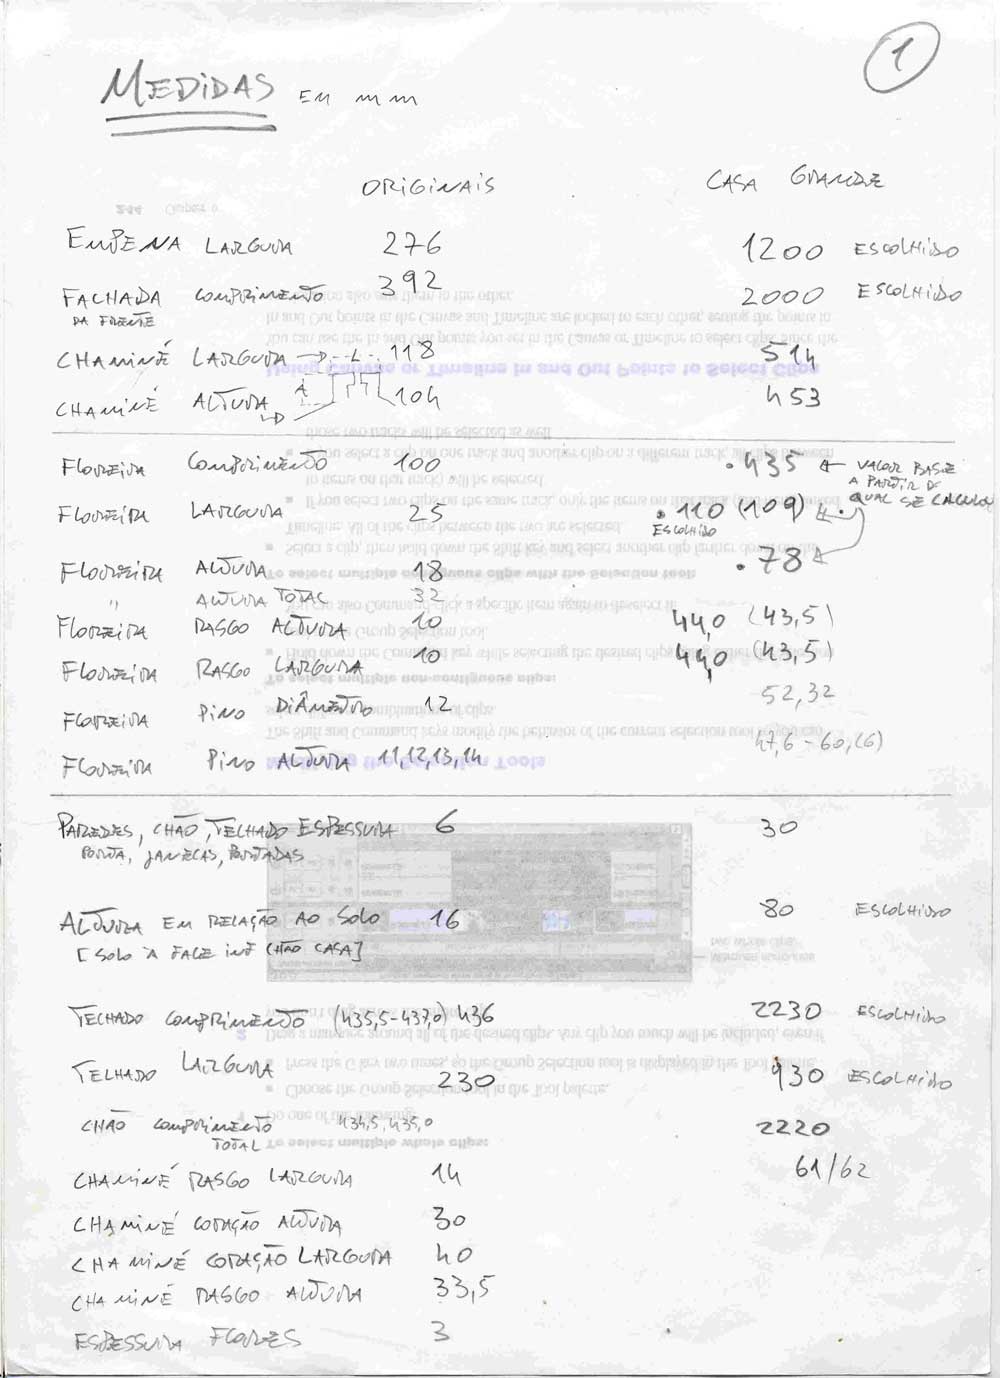 1
MEDIDAS EM mm
ORIGINAIS CASA GRANDE
EMPENA LARGURA 276 1200 ESCOLHIDO
FACHADA DA FRENTE COMPRIMENTO 392 2000 ESCOLHIDO
CHAMINÉ LARGURA → L 118 514
CHAMINÉ ALTURA A 104 453
FLOREIRA COMPRIMENTO 100 .435 ← VALOR BASE A PARTIR DO QUAL SE CALCULOU
FLOREIRA LARGURA 25 . 110 (109) ESCOLHIDO
FLOREIRA ALTURA 18 .78
" ALTURA TOTAL 32
FLOREIRA RASGO ALTURA 10 44,0 (43,5)
FLOREIRA RASGO LARGURA 10 44,0 (43,5)
FLOREIRA PINO DIÂMETRO 12 52,32
FLOREIRA PINO ALTURA 11,12,13,14 47,6 - 60,(6)
PAREDES, CHÃO, TELHADO ESPESSURA 6 30
PORTA, JANELAS, PORTADAS
ALTURA EM RELAÇÃO AO SOLO 16 80 ESCOLHIDO
[SOLO À FACE INF CHÃO CASA]
TELHADO COMPRIMENTO (435,5-437,0) 436 2230 ESCOLHIDO
TELHADO LARGURA 230 930 ESCOLHIDO
CHÃO COMPRIMENTO TOTAL 434,5, 435,0 2220
CHAMINÉ RASGO LARGURA 14 61/62
CHAMINÉ CORAÇÃO ALTURA 30
CHAMINÉ CORAÇÃO LARGURA 40
CHAMINÉ RASGO ALTURA 33,5
ESPESSURA FLORES 3